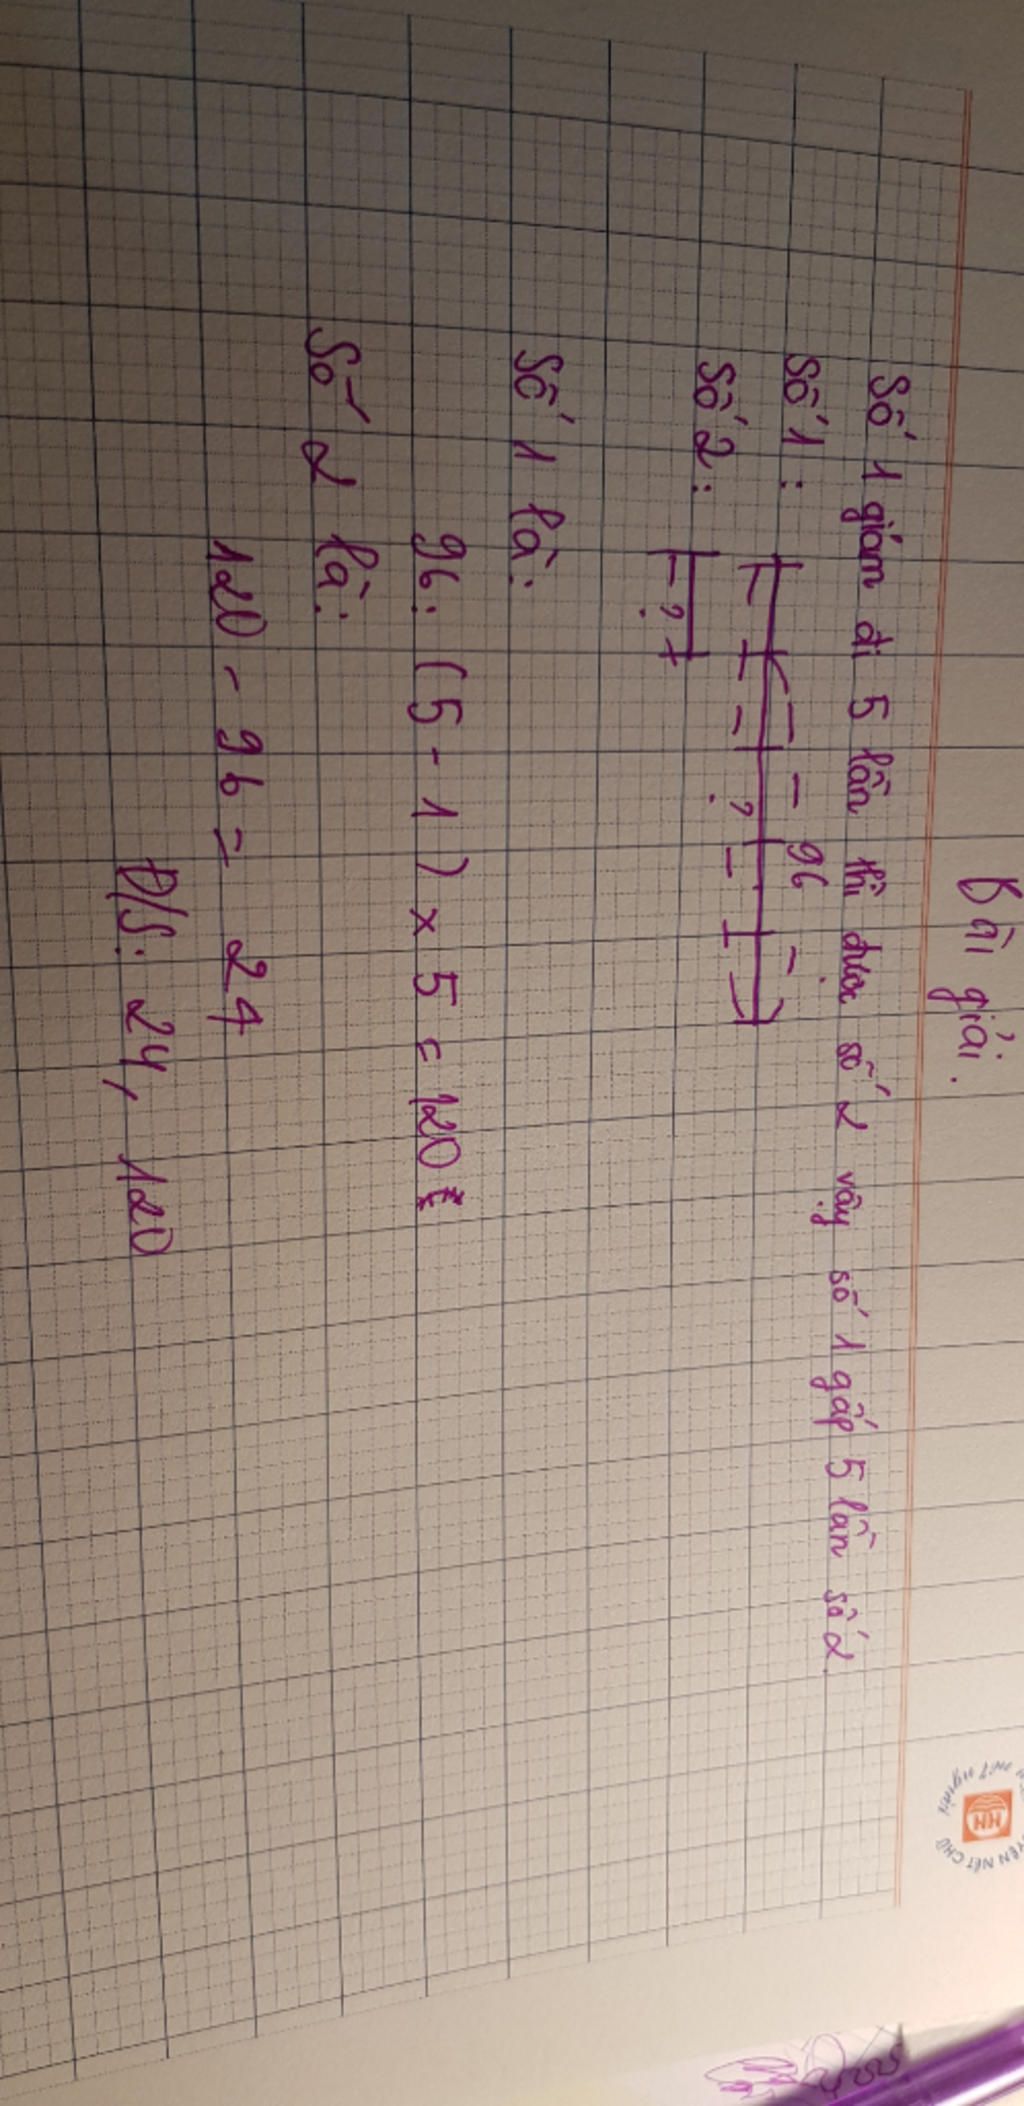 Bài giải.
Số 1 giảm đi 5 lần thì được số 2 vậy số 1 gấp 5 lần số 2
Số 1 :
96
?
Số 2 :
?
Số 1 là :
96 : ( 5 - 1 ) × 5 = 120
Số 2 là :
120 - 96 = 24
Đ/S : 24, 120
NÉT CHỮ
HN